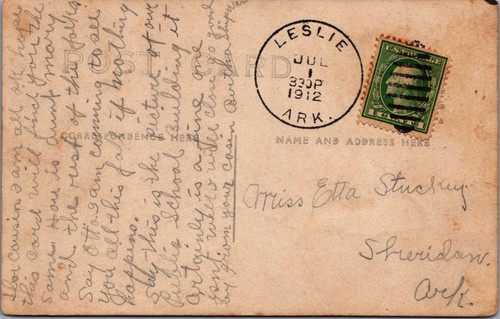 POST CARD
CORRESPONDENCE HERE
NAME AND ADDRESS HERE
LESLIE
JUL
1
330P
1912
ARK.
U.S. POSTAGE
Miss Etta Stuckey
Sheridan
Ark.
cousin I am all ok hope
this card will find you the
same How is aunt Mary
and the rest of the folks
Say Otto I am coming to see
you all this fall if nothing
happens.
Say this is the picture of our
Public School Building it
certainly is a fine one
well close good
by From your cousin Bertha